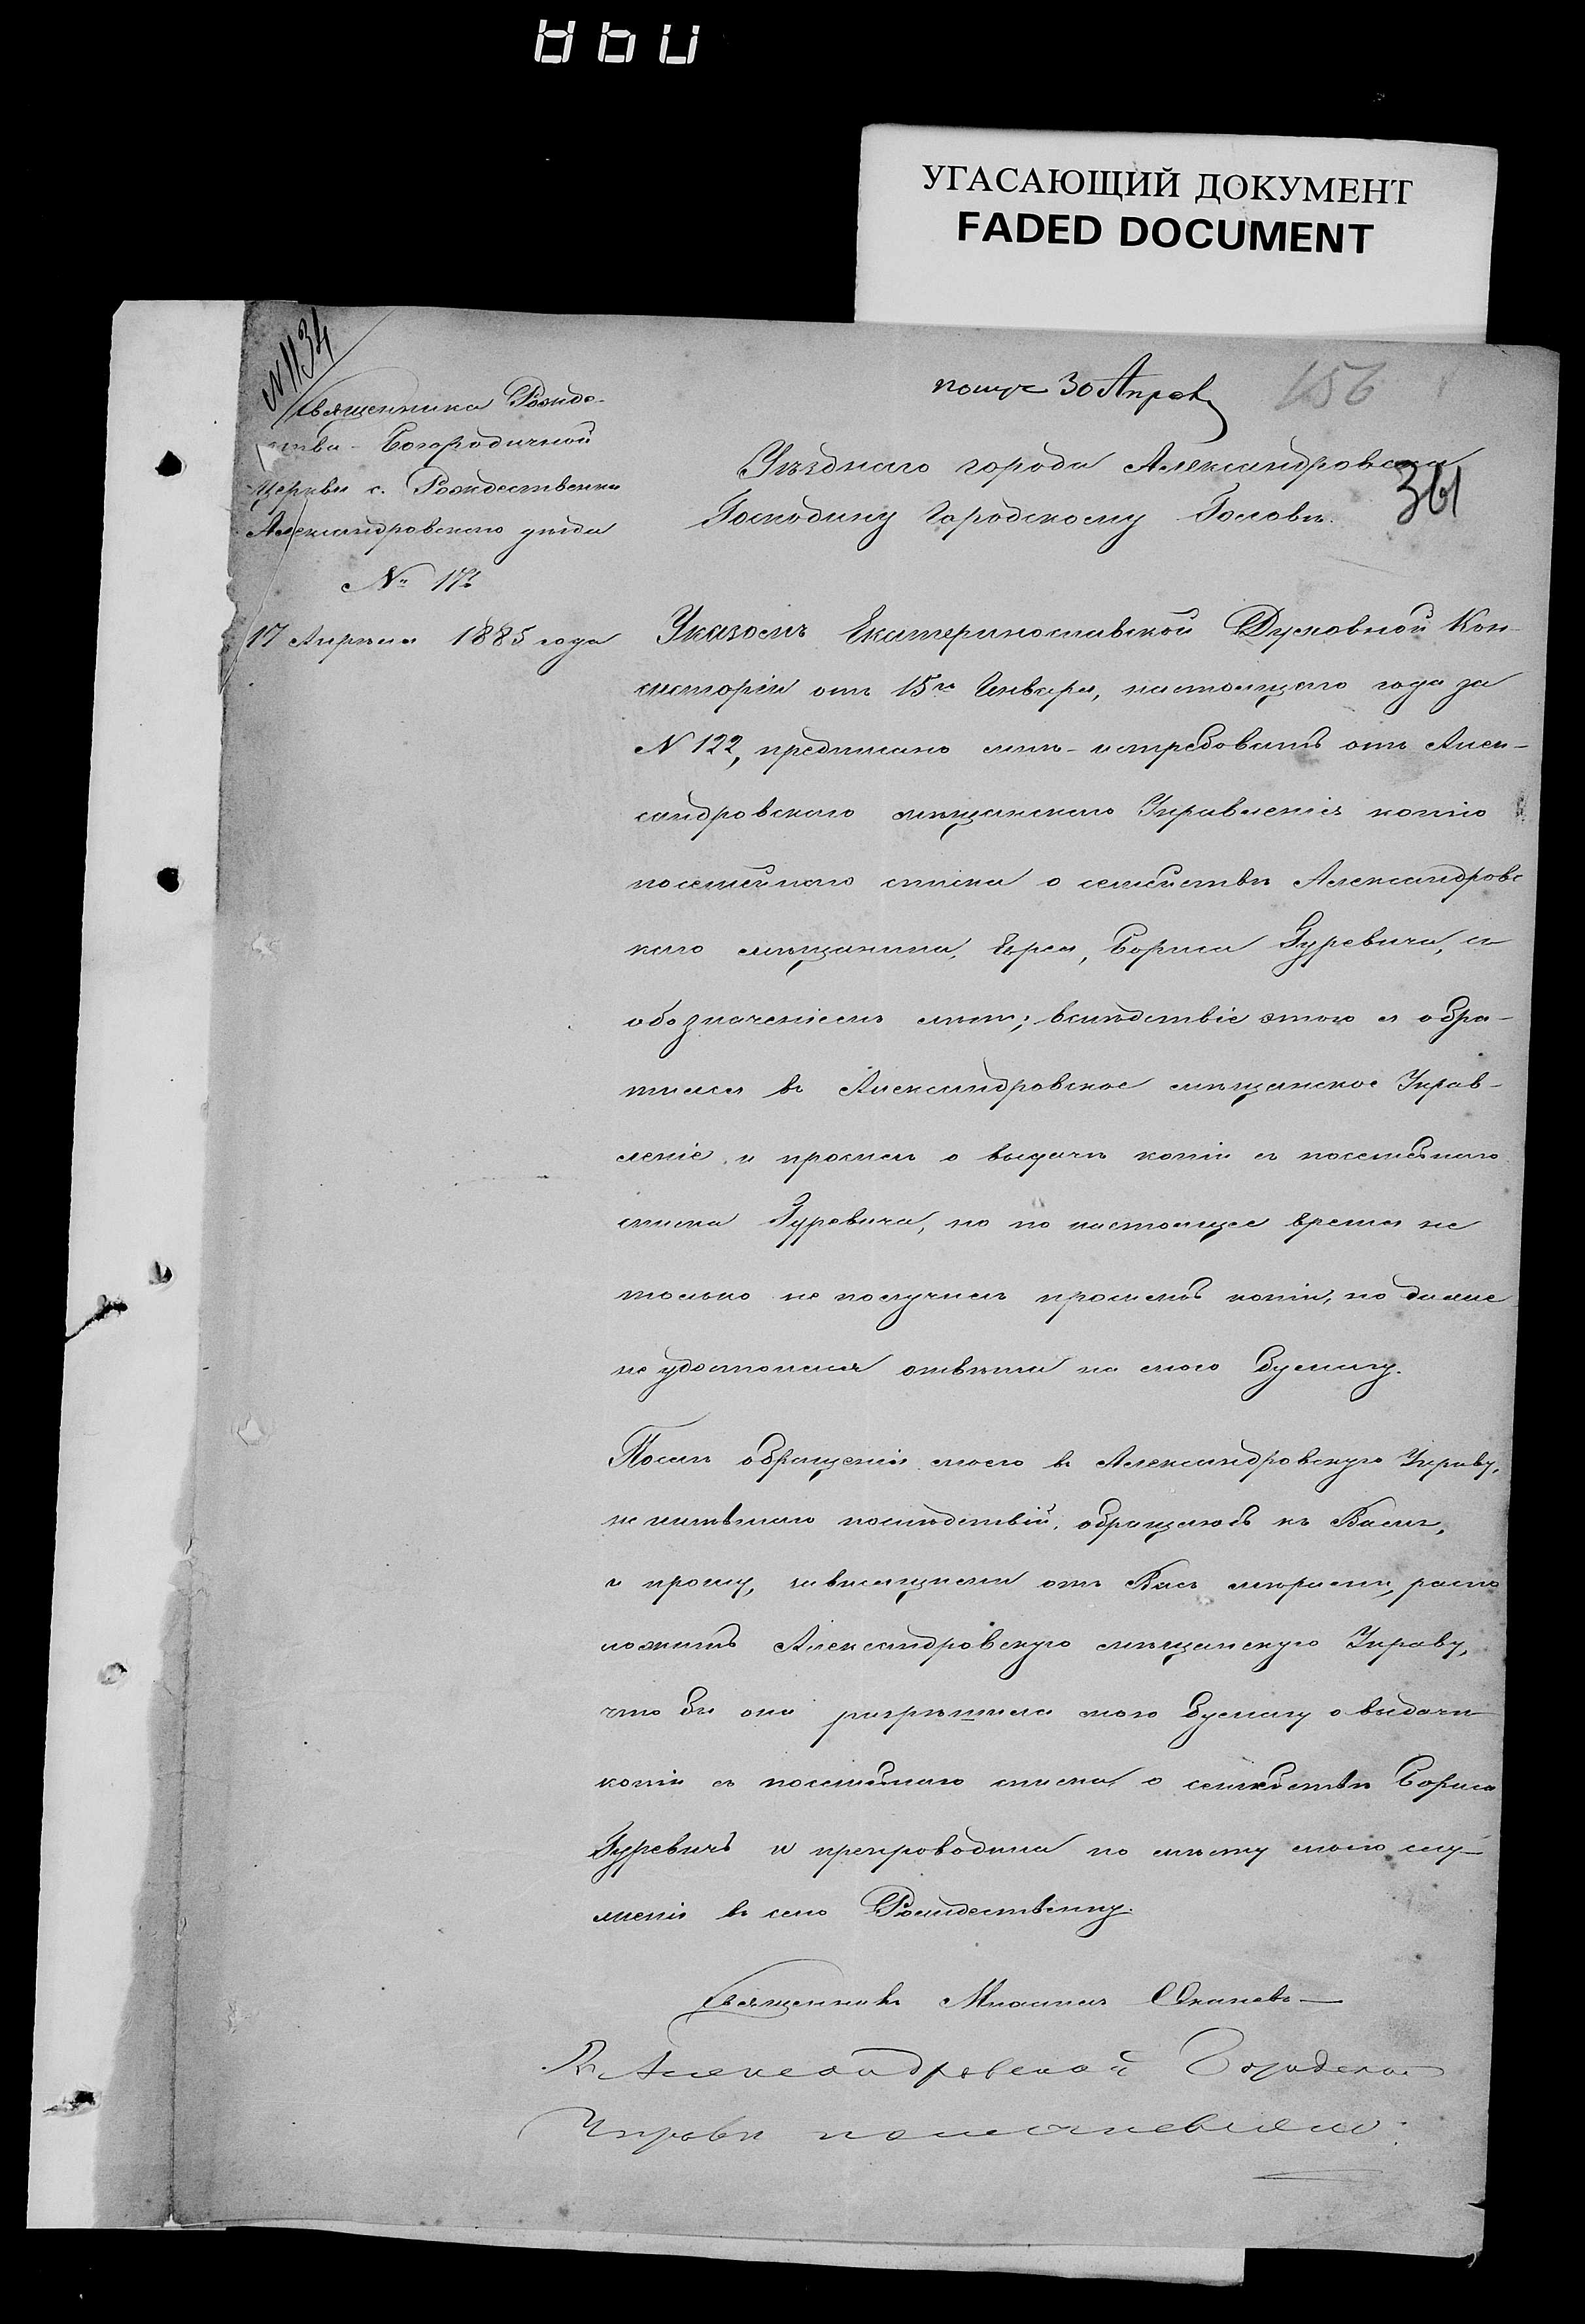 УГАСАЮЩИЙ ДОКУМЕНТ
FADED DOCUMENT
N 1134
получ 30 Апрел
156
361
Священника Рожде-
ства-Богородичной
Церкви с. Рождественки
Александровскаго уезда
№ 17
17 Апреля 1885 года
Уезднаго города Александровска
Господину Городскому Голове.
Указомъ Екатеринославской Духовной Кон-
систоріи отъ 15го Января, настоящаго года за
N 122, предписано мнѣ - истребовать отъ Алек-
сандровскаго мѣщанскаго Управленія копію
посемейнаго списка о семействѣ Александровс
каго мѣщанина, Еврея, Бориса Гуревича, съ
обозначеніемъ лѣтъ; вслѣдствіе этого я обра-
тился въ Александровское мѣщанское Управ-
леніе и просилъ о выдачѣ копіи съ посемейнаго
списка Гуревича, но по настоящее время не
только не получилъ просимой копіи, но даже
не удостоился отвѣта на мою бумагу.
Послѣ обращенія моего въ Александровскую Управу,
не имѣвшаго послѣдствій, обращаюсь къ Вамъ,
и прошу, зависящими отъ Васъ мѣрами, распо
ложить Александровскую мѣщанскую Управу,
что бы она разрѣшила мою бумагу о выдачи
копіи съ посемейнаго списка о семействѣ Бориса
Гуревичъ и препроводила по мѣсту моего слу-
женія въ село Рождественку.
Священникъ Михаилъ
Въ Александровской Городской
Управѣ